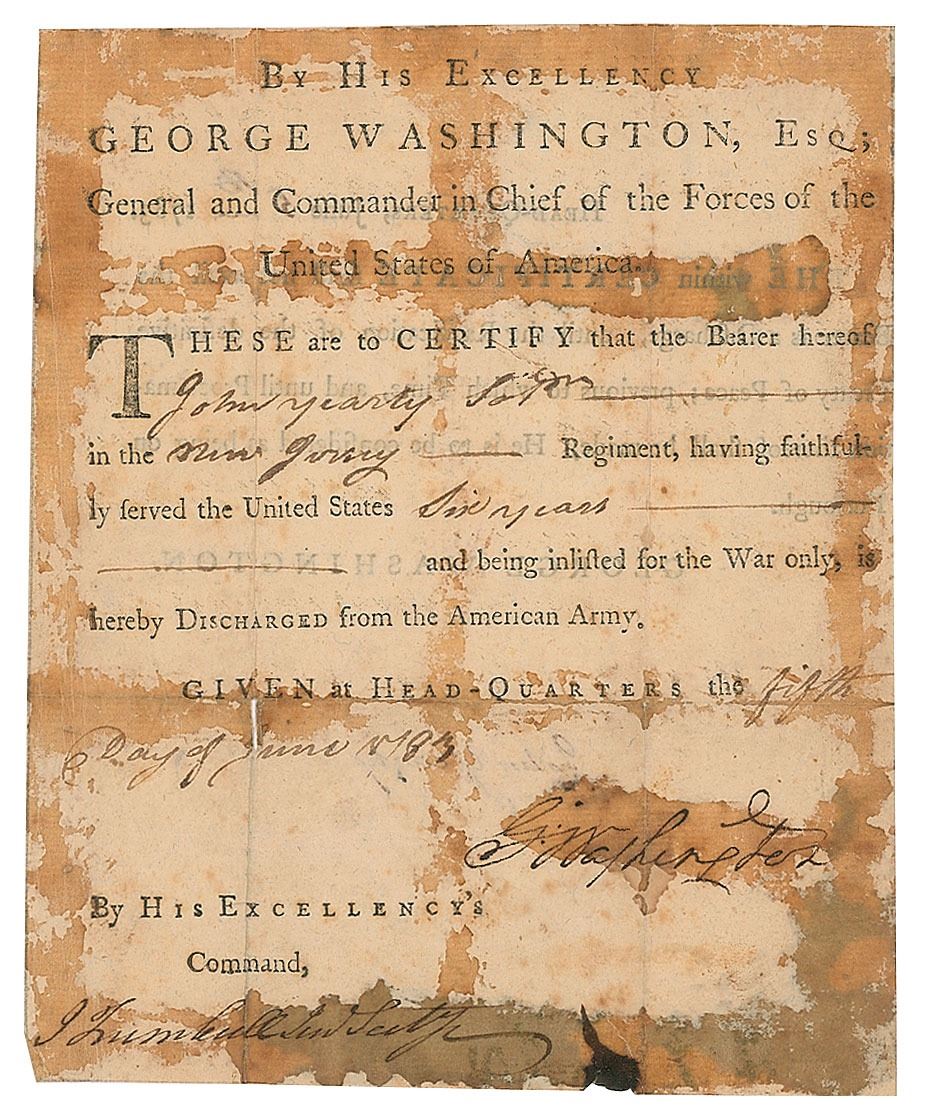 By His Excellency
GEORGE WASHINGTON, Esq;
General and Commander in Chief of the Forces of the
United States of America.
THESE are to CERTIFY that the Bearer hereof
John yearty
in the new Jersey Regiment, having faithful-
ly ſerved the United States Six years
and being inliſted for the War only, is
hereby Discharged from the American Army.
GIVEN at Head-Quarters the fifth
Day of June 1783
G:Washington
By His Excellency's
Command,
J Trumbull Jun Secty